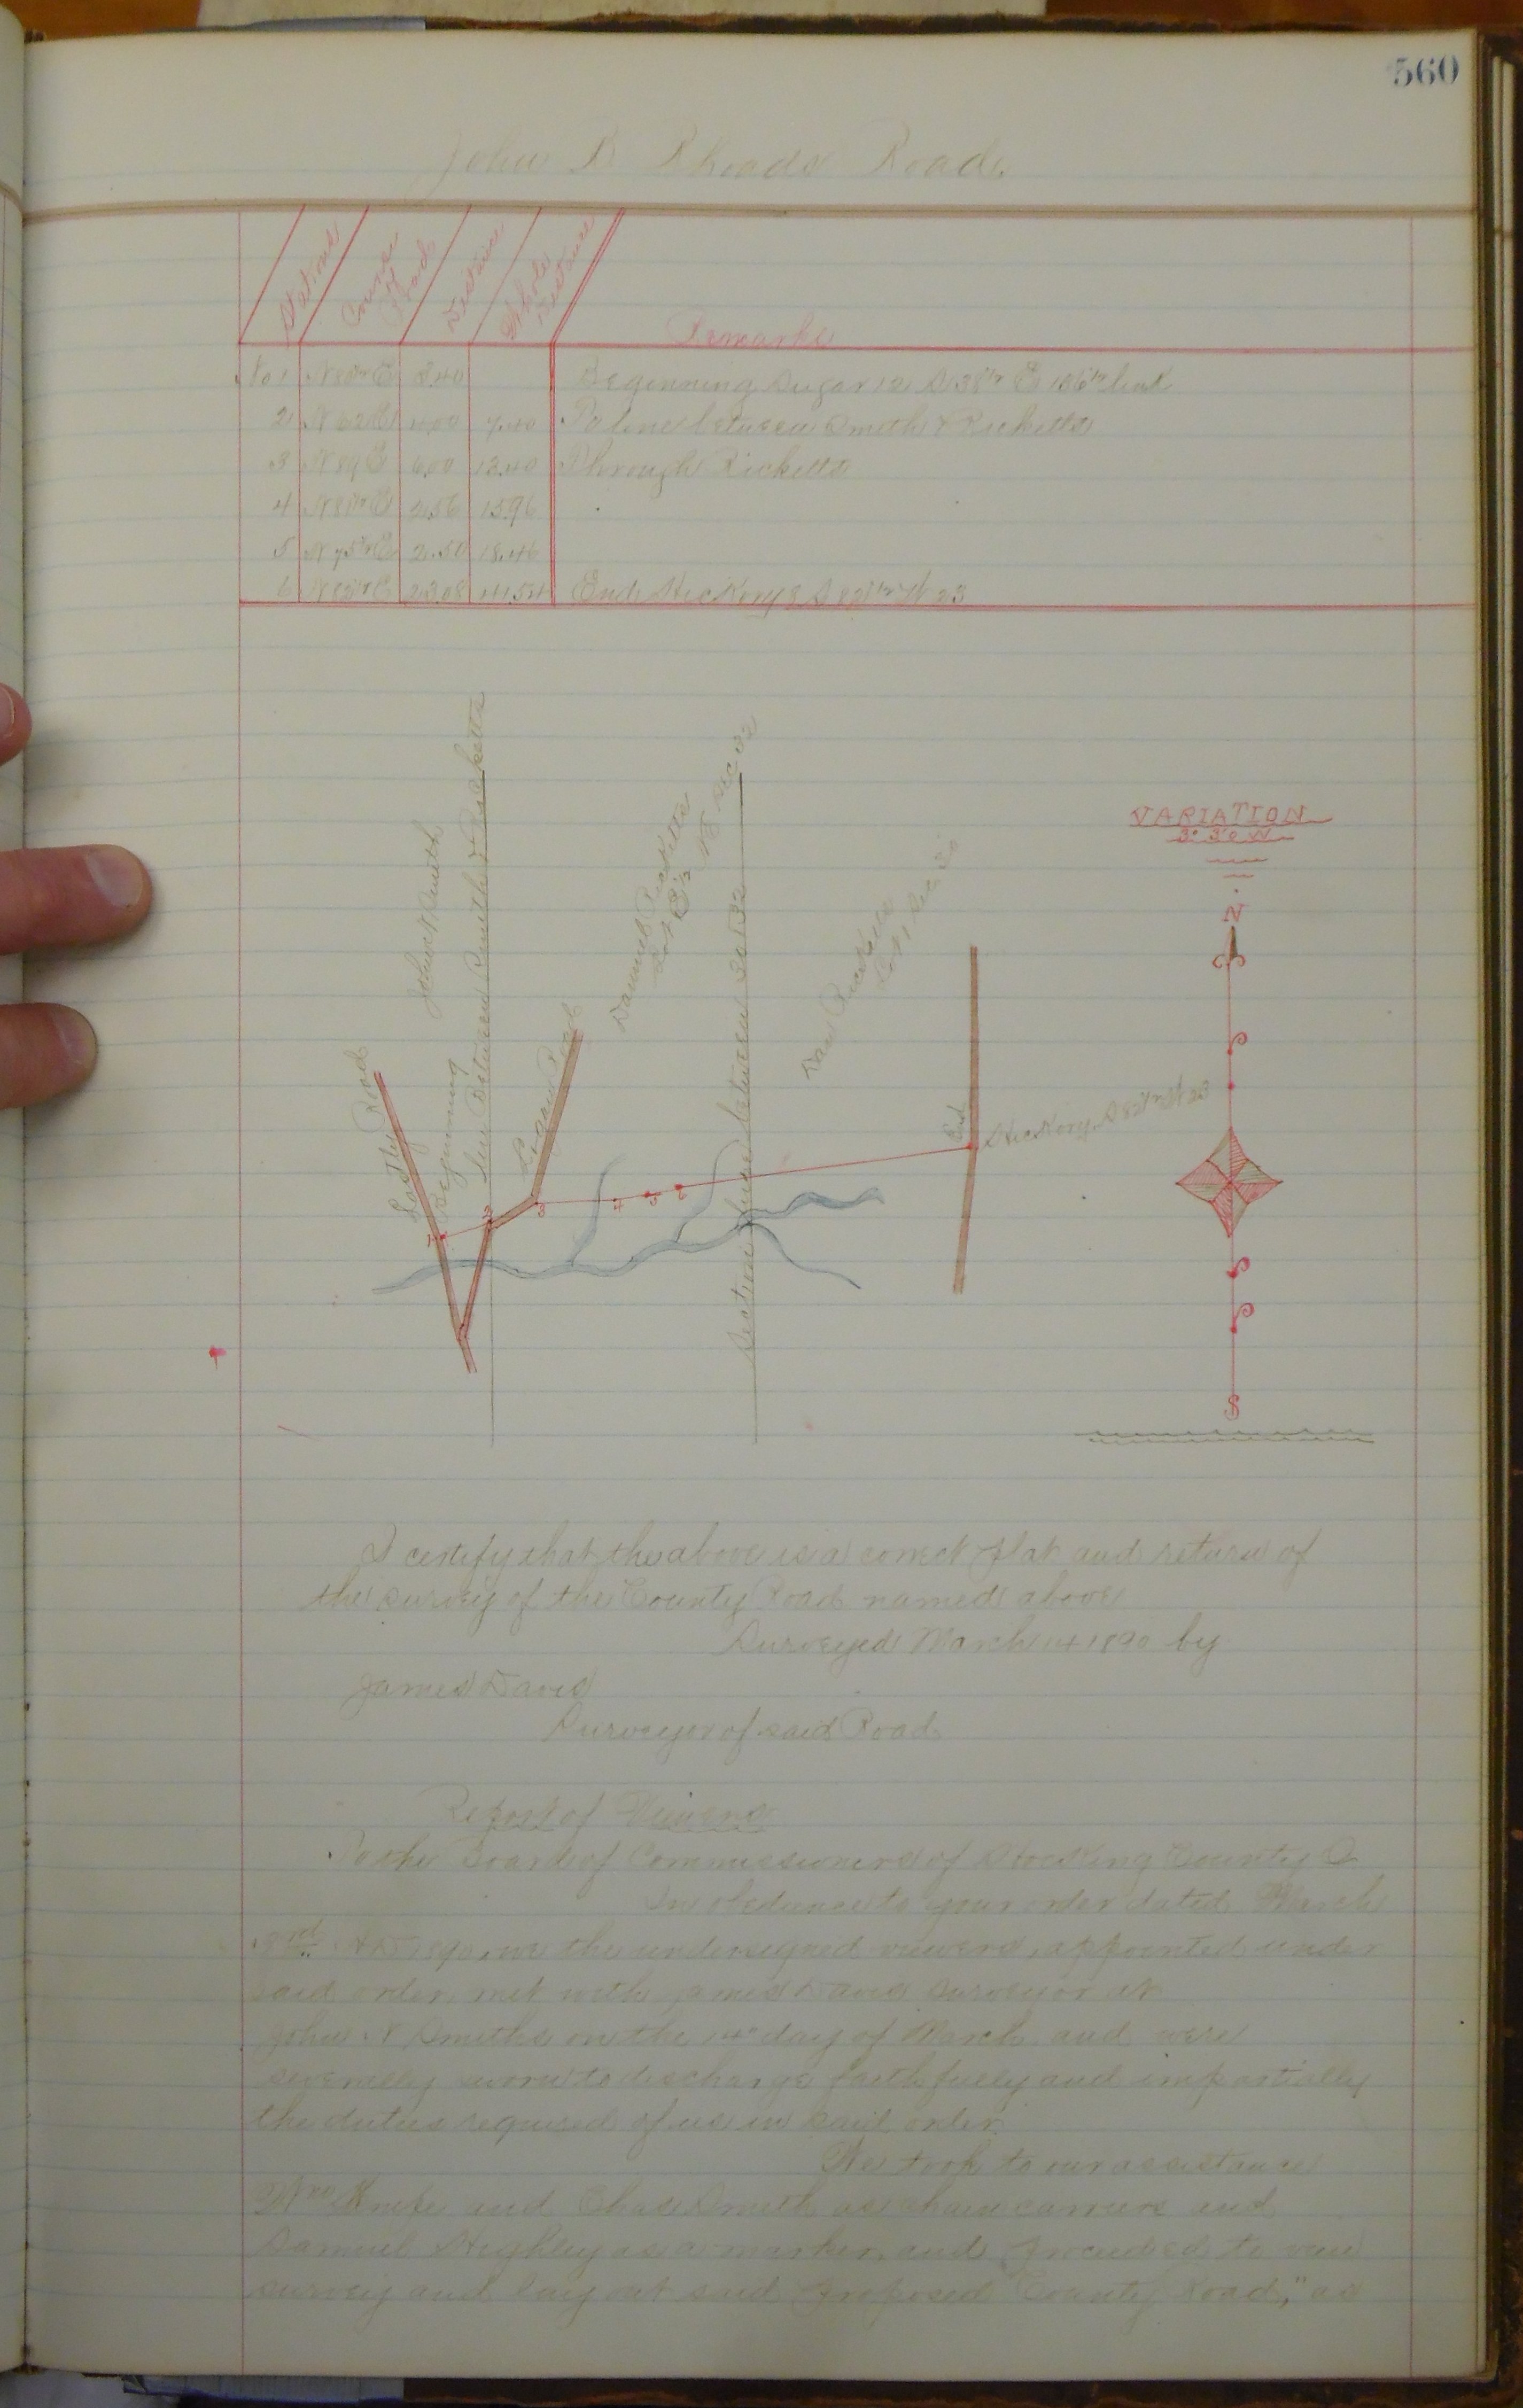 560
John B Rhoads Road
Stations
Course of Road
Distance
Whole Distance
Remarks
No 1 N80½E 3.40 Beginning Sugar 12 S 38½ E 136½ link
2 N62E 4.00 7.40 To line between Smith & Ricketts
3 N89E 6.00 13.40 Through Ricketts
4 N81½E 2.56 15.96
5 N75½E 2.50 18.46
6 N82½E 23.08 41.54 End Hickory 8 S 82½ W 23
VARIATION
3° 30 W
N
S
John N Smith
Line Between Smith & Ricketts
Daniel Ricketts
Lot E½ NE Sec 32
Section line between 30 & 32
Dan Ricketts
Lot 1 Sec 30
Road
Beginning
Logan Road
End
Hickory S 82½ W 23
1
2
3
4
5
6
I certify that the above is a correct plat and return of
the survey of the County Road named above
Surveyed March 14 1890 by
James Davis
Surveyor of said Road
Report of Viewers
To the Board of Commissioners of Hocking County O
In obedience to your order dated March
3rd AD 1890, we the undersigned viewers, appointed under
said order, met with James Davis surveyor at
John N Smiths on the 14" day of March and were
severally sworn to discharge faithfully and impartially
the duties required of us in said order.
We took to our assistance
Wm Knife and Chas Smith as chain carriers and
Samuel Highley as a marker, and proceeded to view
survey and lay out said proposed County Road," as